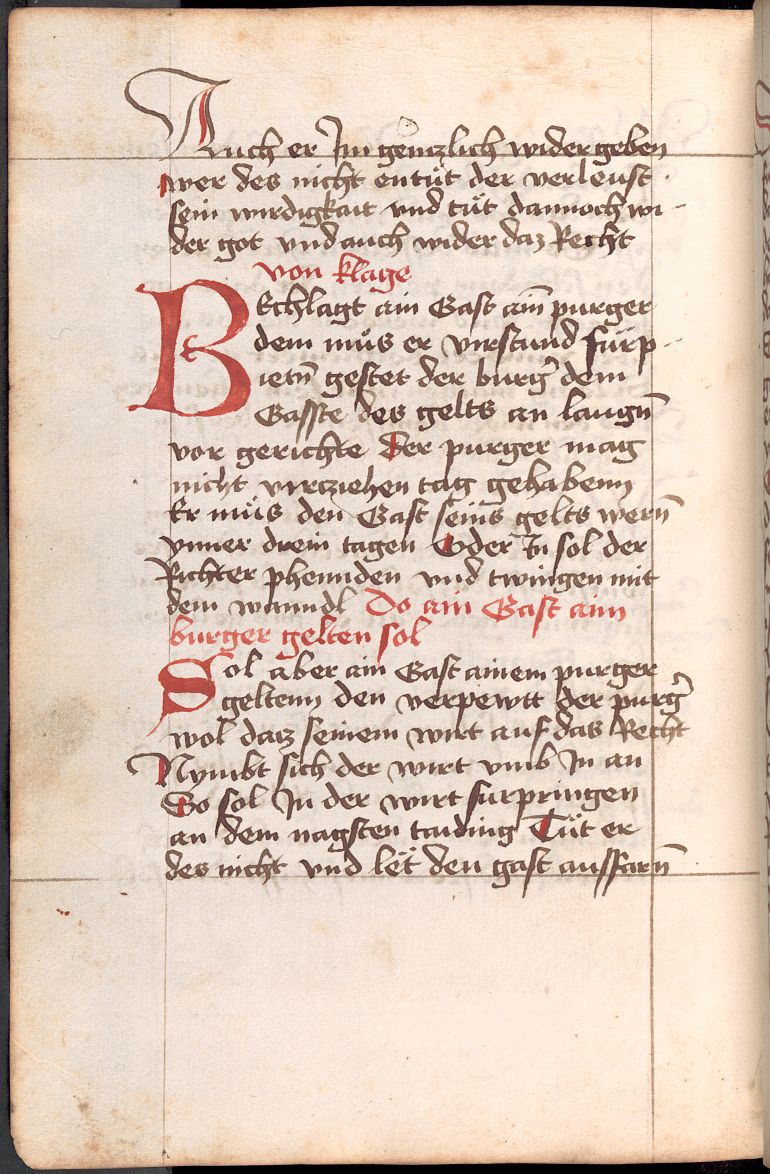 Auch er Im genczlich wider geben
wer des nicht entüt der verleust
sein wirdigkait vnd tüt dannoch wi
der got vnd auch wider daz Recht
von klage
BEchlagt ain Gast ain̄ purger
dem müs er vorstand fürp
ietn̄ gestet der burg̉ dem
Gasste des gelts an laugn̄
vor gerichte Der purger mag
nicht vercziehen tag gehabenn
Er müs den Gast seins gelts wern̄
Inner drein tagen Oder In sol der
Richter phennden vnd twingen mit
dem wanndl Do ain Gast aim
burger gelten sol
Sol aber ain Gast ainem purger
geltenn den verpewtt der purg̉
wol dacz seinem wirt auf das Recht
Nymbt sich der wirt vmb In an
So sol In der wirt furpringen
an dem nagsten taiding Tüt er
des nicht vnd lët den gast aussfarn̄